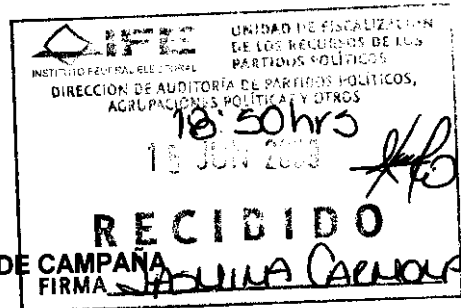 IFE
INSTITUTO FEDERAL ELECTORAL
UNIDAD DE FISCALIZACIÓN
DE LOS RECURSOS DE LOS
PARTIDOS POLÍTICOS
DIRECCIÓN DE AUDITORÍA DE PARTIDOS POLÍTICOS,
AGRUPACIONES POLÍTICAS Y OTROS
18:50hrs
JUN
RECIBIDO
DE CAMPAÑA
FIRMA